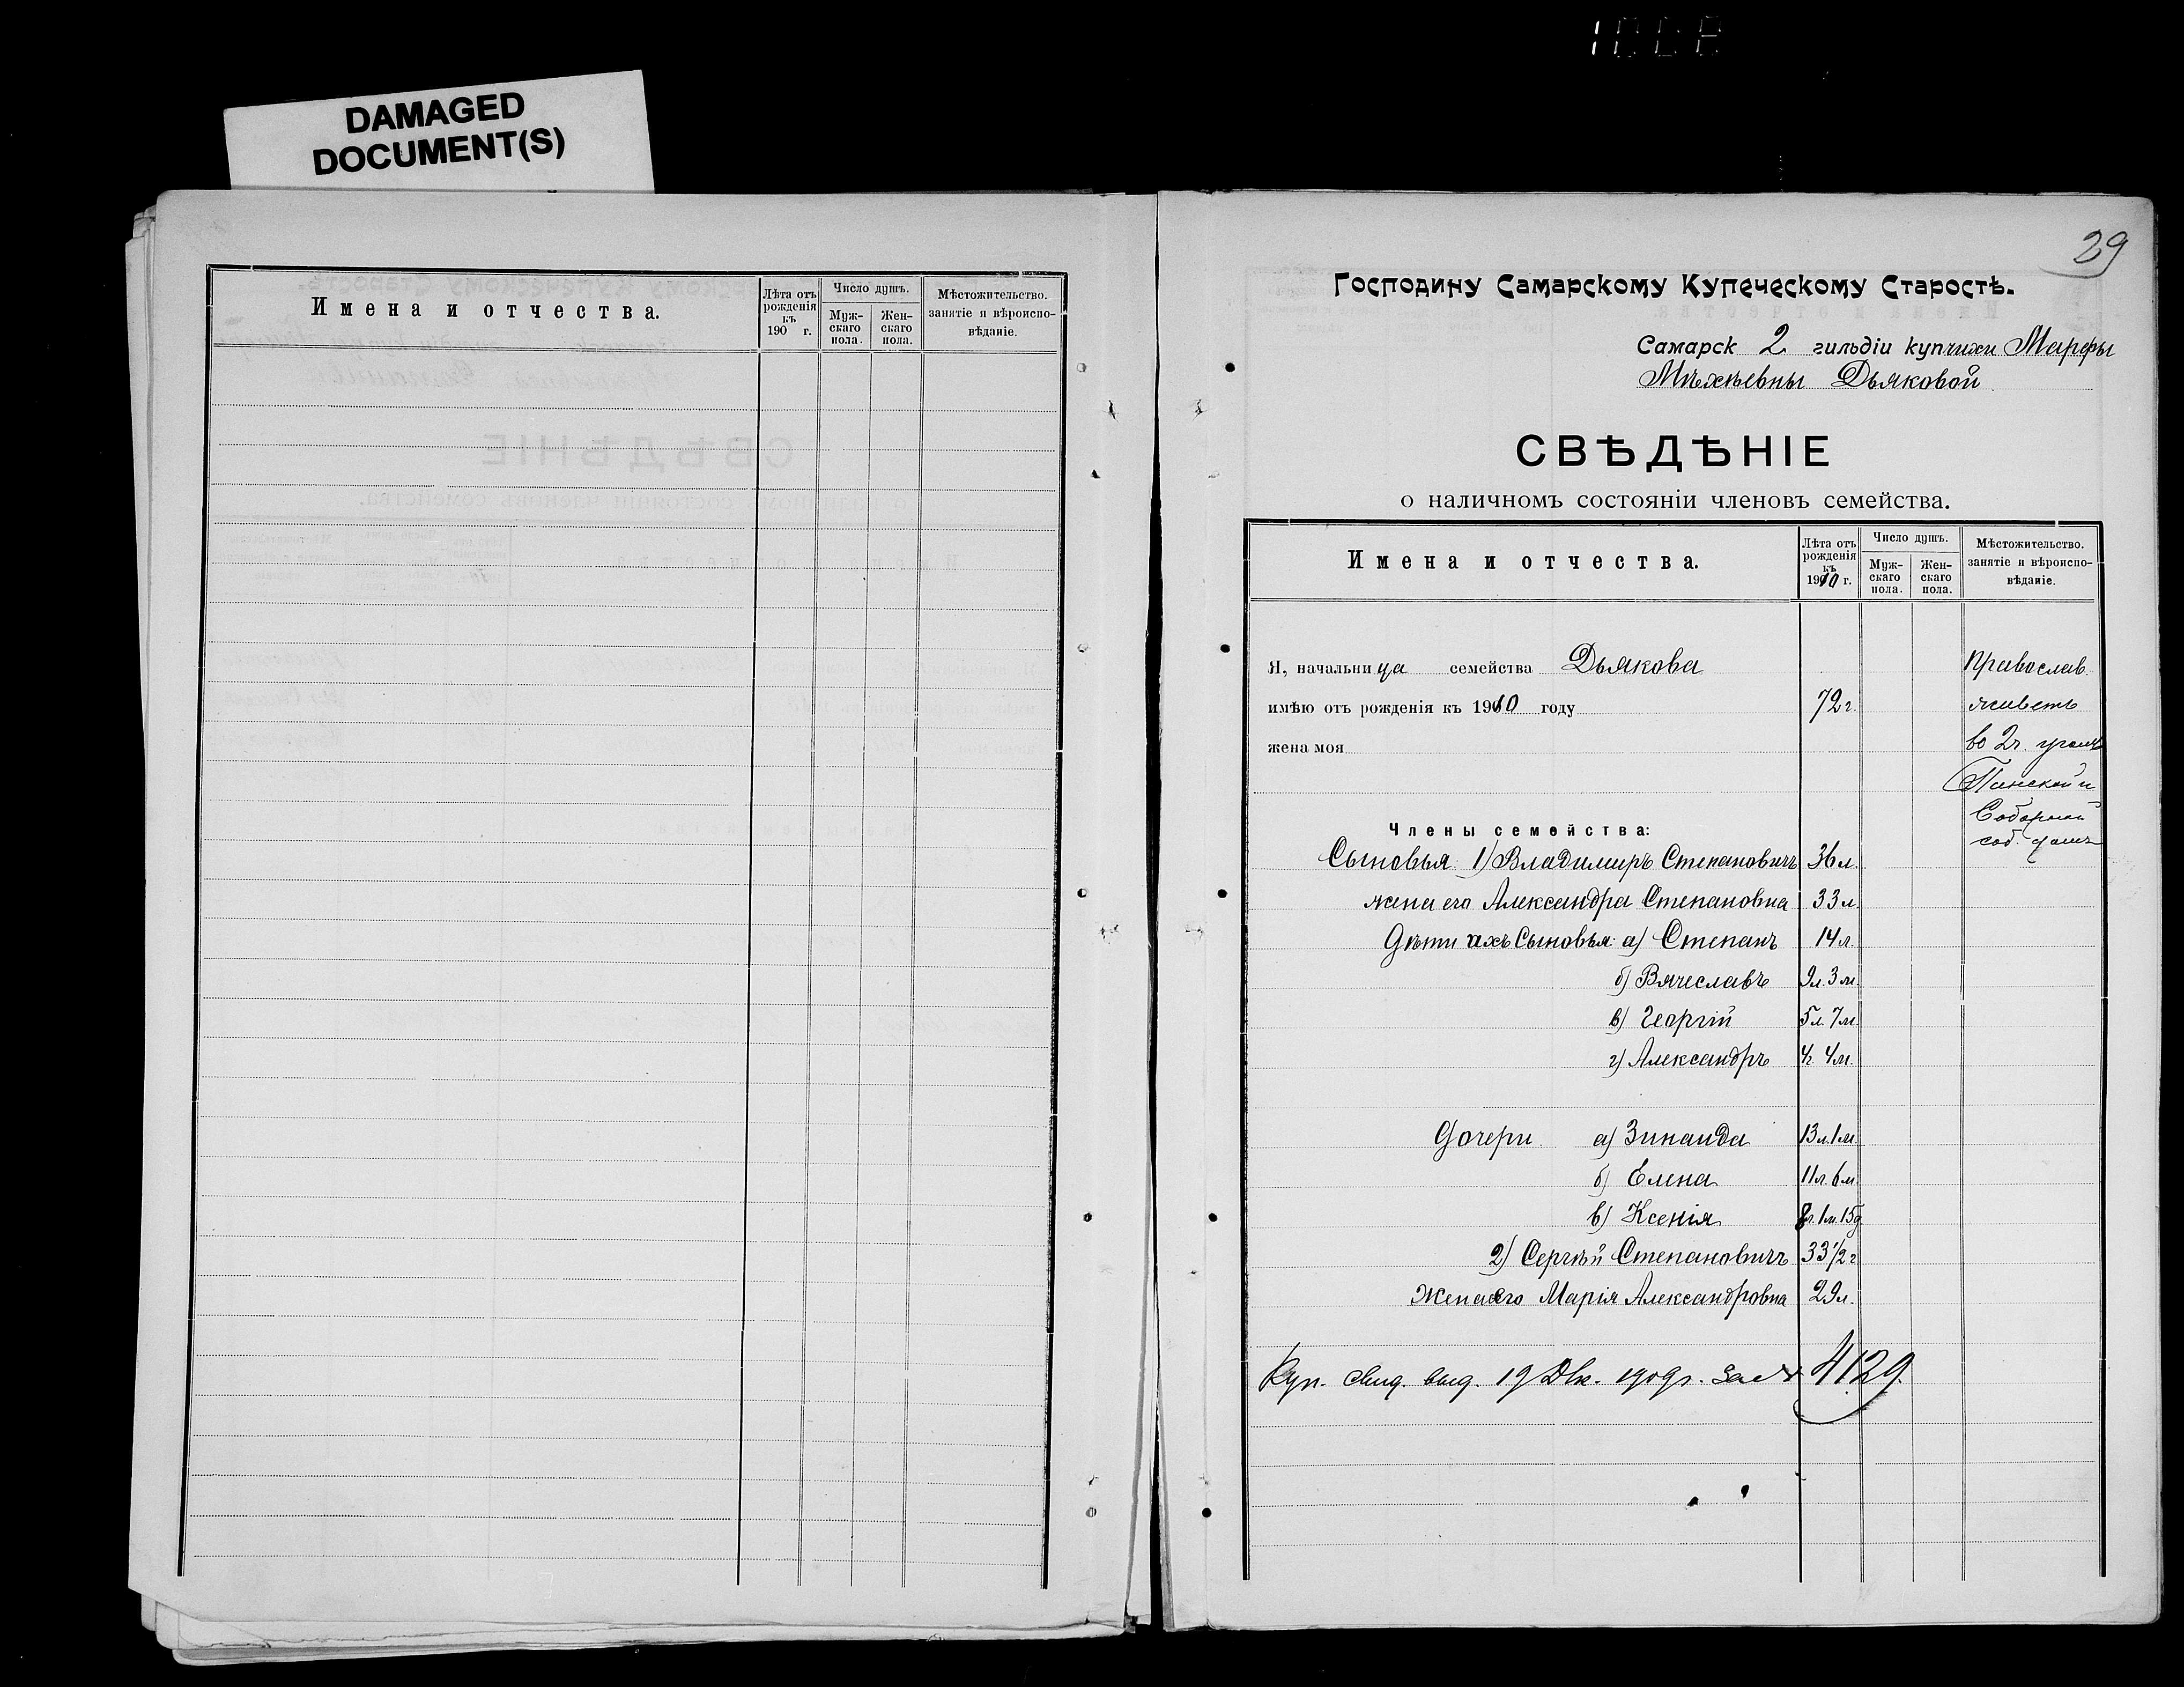 DAMAGED
DOCUMENT(S)
Имена и отчества.
Лѣта отъ рожденія къ 190 г.
Число душъ.
Муж-скаго пола.
Жен-скаго пола.
Мѣстожительство. занятіе и вѣроиспо-вѣданіе.
29
Господину Самарскому Купеческому Старостѣ.
Самарск 2 гильдіи купчихи Марфы
Дьяковой
СВѢДѢНІЕ
о наличномъ состояніи членовъ семейства.
Имена и отчества.
Лѣта отъ рожденія къ 1910 г.
Число душъ.
Муж-скаго пола.
Жен-скаго пола.
Мѣстожительство. занятіе и вѣроиспо-вѣданіе.
Я, начальница семейства Дьякова Православ.
имѣю отъ рожденія къ 1910 году 72 г. живетъ
жена моя во 2 ч.
и
Члены семейства: Соборной
соб. домъ
Сыновья: 1) Владимиръ Степановичъ 36 л.
жена его Александра Степановна 33 л.
Дѣти ихъ Сыновья: а) Степанъ 14 л.
б) Вячеславъ 9 л. 3 м.
в) Георгій 5 л. 7 м.
г) Александръ 4 г. 4 м.
Дочери а) Зинаида 13 л. 1 м.
б) Елена 11 л. 6 м.
в) Ксенія 8 л. 1 м. 15 д.
2) Сергѣй Степановичъ 33 1/2 г.
Жена его Марія Александровна 29 л.
Куп. свид. выд. 19 Дек. 1909 г. за № 4129.